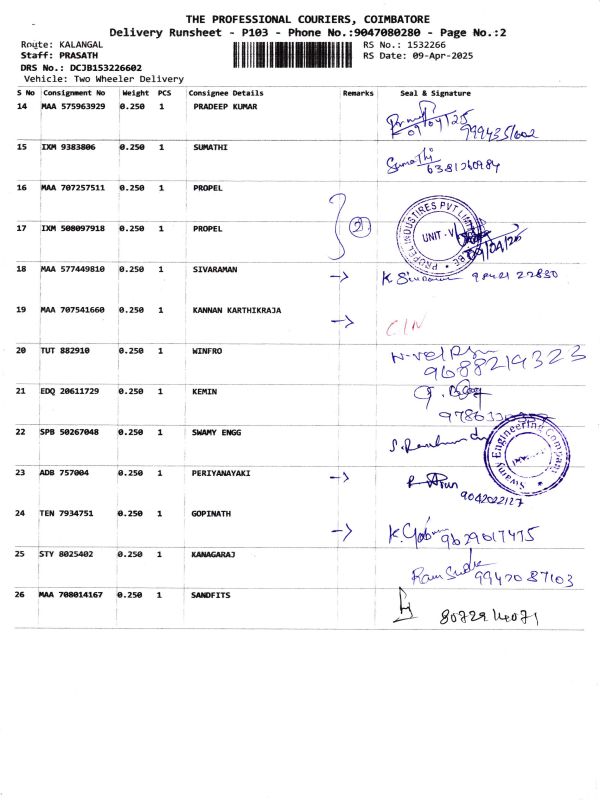 THE PROFESSIONAL COURIERS, COIMBATORE
Delivery Runsheet - P103 - Phone No.:9047080280 - Page No.:2
Route: KALANGAL RS No.: 1532266
Staff: PRASATH RS Date: 09-Apr-2025
DRS No.: DCJB153226602
Vehicle: Two Wheeler Delivery
S No Consignment No Weight PCS Consignee Details Remarks Seal & Signature
14 MAA 575963929 0.250 1 PRADEEP KUMAR
09/04/25
15 IXM 9383806 0.250 1 SUMATHI Sumathi
6381260984
16 MAA 707257511 0.250 1 PROPEL
17 IXM 508097918 0.250 1 PROPEL PROPEL INDUSTRIES PVT UNIT - V
09/04/25
18 MAA 577449810 0.250 1 SIVARAMAN K
19 MAA 707541660 0.250 1 KANNAN KARTHIKRAJA
C/N
20 TUT 882910 0.250 1 WINFRO
9688219323
21 EDQ 20611729 0.250 1 KEMIN
22 SPB 50267048 0.250 1 SWAMY ENGG Swamy Engineering Company
23 ADB 757004 0.250 1 PERIYANAYAKI
9042022127
24 TEN 7934751 0.250 1 GOPINATH
K. 9629017475
25 STY 8025402 0.250 1 KANAGARAJ
9942087103
26 MAA 708014167 0.250 1 SANDFITS
8072914071